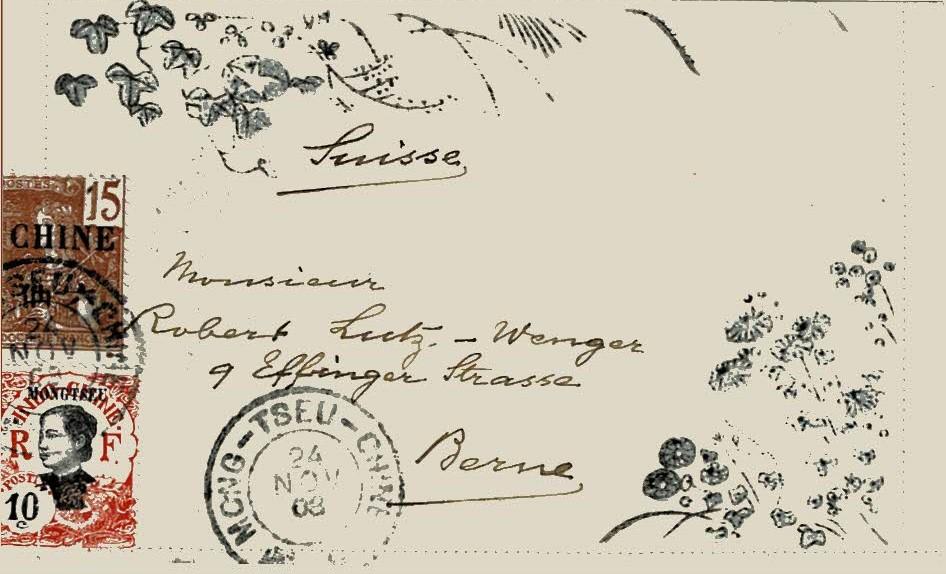 Suisse
POSTES
15
CHINE
24
NOV
MONGTSEU
R F
POSTES
10
c
Monsieur
Robert Lutz. - Wenger
9 Effinger Strasse
Berne
MONG-TSEU-CHINE
24
NOV
08